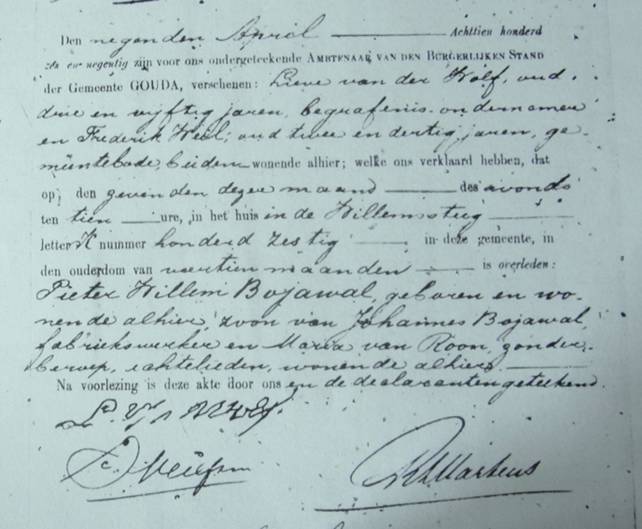 Den negenden April Achttien honderd
en negentig zijn voor ons ondergeteekende AMBTENAAR VAN DEN BURGERLIJKEN STAND
der Gemeente GOUDA, verschenen: Lieve van der Wolf, oud
drie en vijftig jaren, begrafenis-ondernemer
en Frederik oud twee en dertig jaren, ge-
meentebode, beiden wonende alhier; welke ons verklaard hebben, dat
op den zevenden dezer maand des avonds
ten tien ure, in het huis in de Willemsteeg
letter K nummer honderd zestig in deze gemeente, in
den ouderdom van veertien maanden is overleden:
Pieter Willem Bojawal, geboren en wo-
nende alhier, zoon van Johannes Bojawal,
fabriekswerker en Maria van Roon, zonder
beroep, echtelieden, wonende alhier
Na voorlezing is deze akte door ons en de declaranten geteekend.
Martens